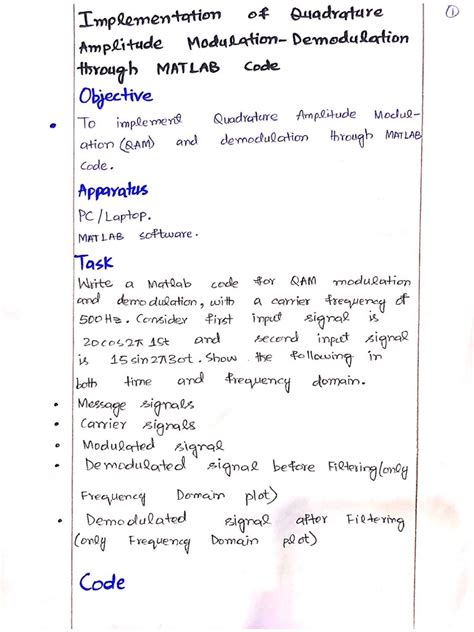 Implementation of Quadrature
①
Amplitude Modulation-Demodulation
through MATLAB Code
Objective
• To implement Quadrature Amplitude Modul-
ation (QAM) and demodulation through MATLAB
Code.
Apparatus
PC/Laptop.
MATLAB software.
Task
Write a Matlab code for QAM modulation
and demodulation, with a carrier frequency of
500Hz. Consider first input signal is
20cos2π15t and second input signal
is 15sin2π30t. Show the following in
both time and frequency domain.
• Message signals
• Carrier signals
• Modulated signal
• Demodulated signal before Filtering(only
Frequency Domain plot)
• Demodulated signal after Filtering
(only Frequency Domain plot)
Code